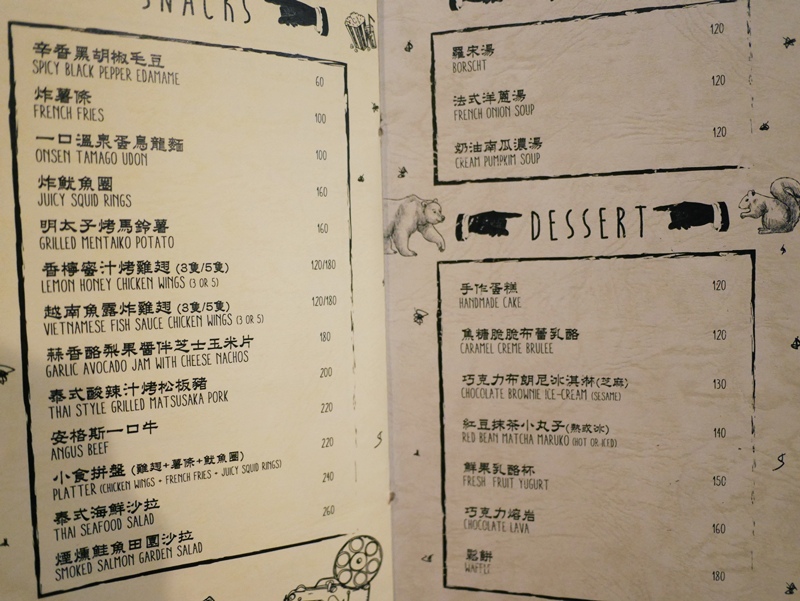 SNACKS
辛香黑胡椒毛豆
SPICY BLACK PEPPER EDAMAME
60
炸薯條
FRENCH FRIES
100
一口溫泉蛋烏龍麵
ONSEN TAMAGO UDON
100
炸魷魚圈
JUICY SQUID RINGS
160
明太子烤馬鈴薯
GRILLED MENTAIKO POTATO
160
香檸蜜汁烤雞翅 (3隻/5隻)
LEMON HONEY CHICKEN WINGS (3 OR 5)
120/180
越南魚露炸雞翅 (3隻/5隻)
VIETNAMESE FISH SAUCE CHICKEN WINGS (3 OR 5)
120/180
蒜香酪梨果醬伴芝士玉米片
GARLIC AVOCADO JAM WITH CHEESE NACHOS
180
泰式酸辣汁烤松板豬
THAI STYLE GRILLED MATSUSAKA PORK
200
安格斯一口牛
ANGUS BEEF
220
小食拼盤 (雞翅+薯條+魷魚圈)
PLATTER (CHICKEN WINGS + FRENCH FRIES + JUICY SQUID RINGS)
220
泰式海鮮沙拉
THAI SEAFOOD SALAD
240
煙燻鮭魚田園沙拉
SMOKED SALMON GARDEN SALAD
260
120
羅宋湯
BORSCHT
120
法式洋蔥湯
FRENCH ONION SOUP
120
奶油南瓜濃湯
CREAM PUMPKIM SOUP
DESSERT
手作蛋糕
HANDMADE CAKE
120
焦糖脆脆布蕾乳酪
CARAMEL CREME BRULEE
120
巧克力布朗尼冰淇淋(芝麻)
CHOCOLATE BROWNIE ICE-CREAM (SESAME)
130
紅豆抹茶小丸子(熱或冰)
RED BEAN MATCHA MARUKO (HOT OR ICED)
140
鮮果乳酪杯
FRESH FRUIT YUGURT
150
巧克力熔岩
CHOCOLATE LAVA
160
鬆餅
WAFFLE
180